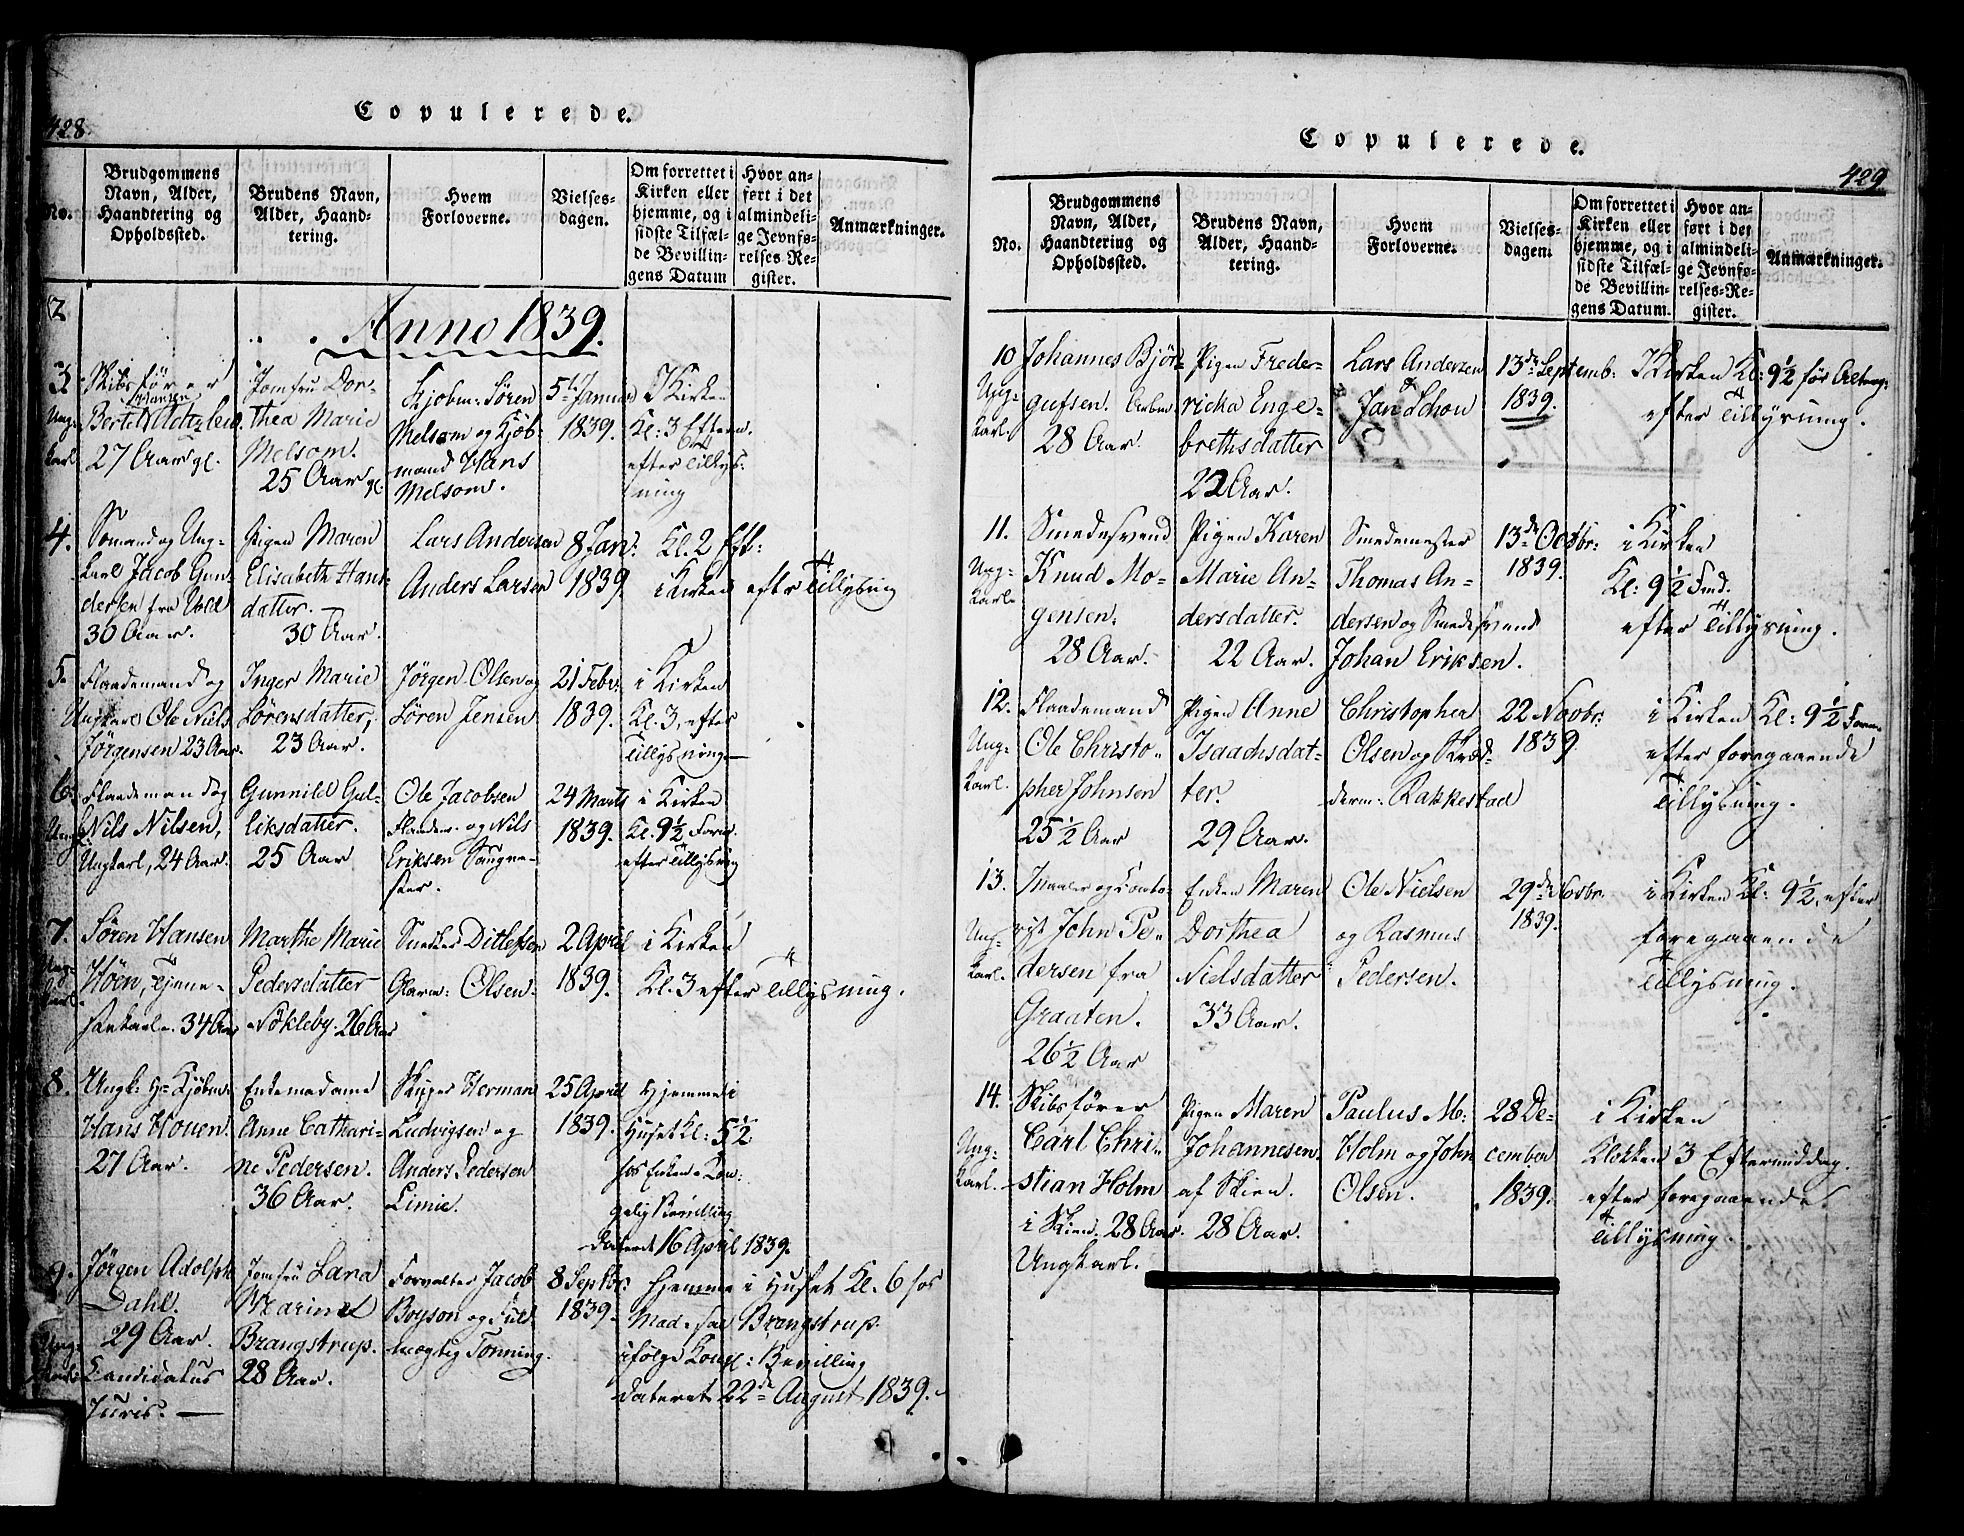 428.
Copulerede.
No.
Brudgommens
Navn, Alder,
Haandtering og
Opholdssted.
Brudens Navn,
Alder, Haand-
tering.
Hvem
Forloverne.
Vielses-
dagen.
Om forrettet i
Kirken eller
hjemme, og i
sidste Tilfæl-
de Bevillin-
gens Datum
Hvor an-
ført i det
almindeli-
ge Jevnfø-
relses Re-
gister.
Anmærkninger.
2
Anno 1839.
3
Ung-
karl
Skibsfører
Bertel
27 Aar gl.
Jomfru Dor-
thea Marie
Melsom.
25 Aar gl.
Kjøbm: Sören
Melsom og Kjöb-
mand Hans
Melsom.
5te Januar
1839.
I Kirken
Kl: 3 Efterm.
efter Tillys-
ning
4.
Sömand og Ung-
karl Jacob Gun-
dersen fra
30 Aar.
Pigen Maren
Elisabeth Hans-
datter.
30 Aar.
Lars Andersen
Anders Larsen
8 Jan:
1839
Kl. 2 Eft:
i Kirken efter Tillysning
5.
Flaademand og
Ungkarl Ole Niels
Jörgensen 23 Aar.
Inger Marie
Sörensdatter,
23 Aar.
Jörgen Olsen og
Sören Jensen
21 Febr.
1839.
i Kirken
Kl. 3, efter
Tillysning
6.
Flaademand og
Nils Nilsen,
Ungkarl, 24 Aar.
Gunnild Gul-
liksdatter.
25 Aar
Ole Jacobsen
Flaadem. og Nils
Eriksen Saugme-
ster.
24 Marts
1839.
i Kirken
Kl. 9½ Form.
efter Tillysning
7.
Ung-
karl
Sören Hansen
Höen, Tjene-
stekarl. 34 Aar
Marthe Marie
Pedersdatter
Nökleby. 26 Aar
Ditlefsen
Glarm: Olsen.
2 April
1839.
i Kirken
Kl. 3 efter Tillysning.
8.
Ungk: Hr Kjöbm:
Hans Houen.
27 Aar.
Enkemadame
Anne Cathari-
ne Pedersen.
36 Aar.
Skipper Herman
Ludvigsen og
Anders Pedersen
Limie.
25 April
1839.
Hjemme i
Huset Kl: 5½
hos Enken. Kon-
gelig Bevilling
dateret 16 April 1839.
9.
Ung-
karl
Jörgen Adolph
Dahl.
29 Aar.
Candidatus
Juris.
Jomfru Lara
Marine
Brangstrup.
28 Aar.
Forvalter Jacob
Boyson og Fuld-
mægtig Tönning.
8 Septbr.
1839.
Hjemme i Huset Kl. 6 hos
Mad. Brangstrup.
ifölge Kongl: Bevilling
dateret 22de August 1839.
Copulerede.
429
No.
Brudgommens
Navn, Alder,
Haandtering og
Opholdssted.
Brudens Navn,
Alder, Haand-
tering.
Hvem
Forloverne.
Vielses-
dagen.
Om forrettet i
Kirken eller
hjemme, og i
sidste Tilfæl-
de Bevillin-
gens Datum.
Hvor an-
ført i det
almindeli-
ge Jevnfø-
relses-Re-
gister.
Anmærkninger.
10
Ung-
karl.
Johannes Björ-
gufsen.
28 Aar.
Pigen Frede-
ricka Enge-
brethsdatter
22 Aar.
Lars Andersen
Jan Schou
13de Septemb:
1839.
I Kirken Kl: 9½ för
efter Tillysning.
11.
Ung-
karl
Smedesvend
Knud Mo-
gensen.
28 Aar.
Pigen Karen
Marie An-
dersdatter.
22 Aar.
Smedemester
Thomas An-
dersen og Smedesvend
Johan Eriksen.
13de Octbr:
1839.
i Kirken
Kl: 9½ Fmd.
efter Tillysning.
12.
Ung-
karl.
Flaademand
Ole Christo-
pher Johnsen
25½ Aar
Pigen Anne
Isaachsdat-
ter.
29 Aar.
Christopher
Olsen og Skræd-
derm: Rakkestad
22 Novbr:
1839
i Kirken Kl: 9½ Form.
efter foregaaende
Tillysning.
13.
Ung-
karl.
Maaler og Conto-
rist John Pe-
dersen fra
Graaten.
26½ Aar
Enken Maren
Dorthea
Nielsdatter
33 Aar.
Ole Nielsen
og Rasmus
Pedersen.
29de Novbr.
1839.
i Kirken Kl: 9½, efter
foregaaende
Tillysning.
14.
Ung-
karl.
Skibsförer
Carl Chri-
stian Holm
i Skien. 28 Aar.
Ungkarl.
Pigen Maren
Johannesen.
af Skien.
28 Aar.
Paulus M:
Holm og John
Olsen.
28 De-
cember
1839.
i Kirken
Klokken 3 Eftermiddag.
efter foregaaende
Tillysning.